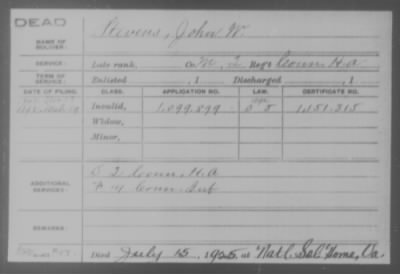 DEAD
NAME OF SOLDIER: Stevens, John W.
SERVICE: Late rank, Co. M, 2 Reg't Conn. H.A.
TERM OF SERVICE: Enlisted , 1 Discharged , 1
DATE OF FILING. CLASS. APPLICATION NO. LAW. CERTIFICATE NO.
Invalid, 1,099,899 1,151,315
Widow,
Minor,
ADDITIONAL SERVICES: 2 Conn. H.A.
Conn. Inf
REMARKS:
Died July 15, 1925, at Nat'l Sol Home, Va.